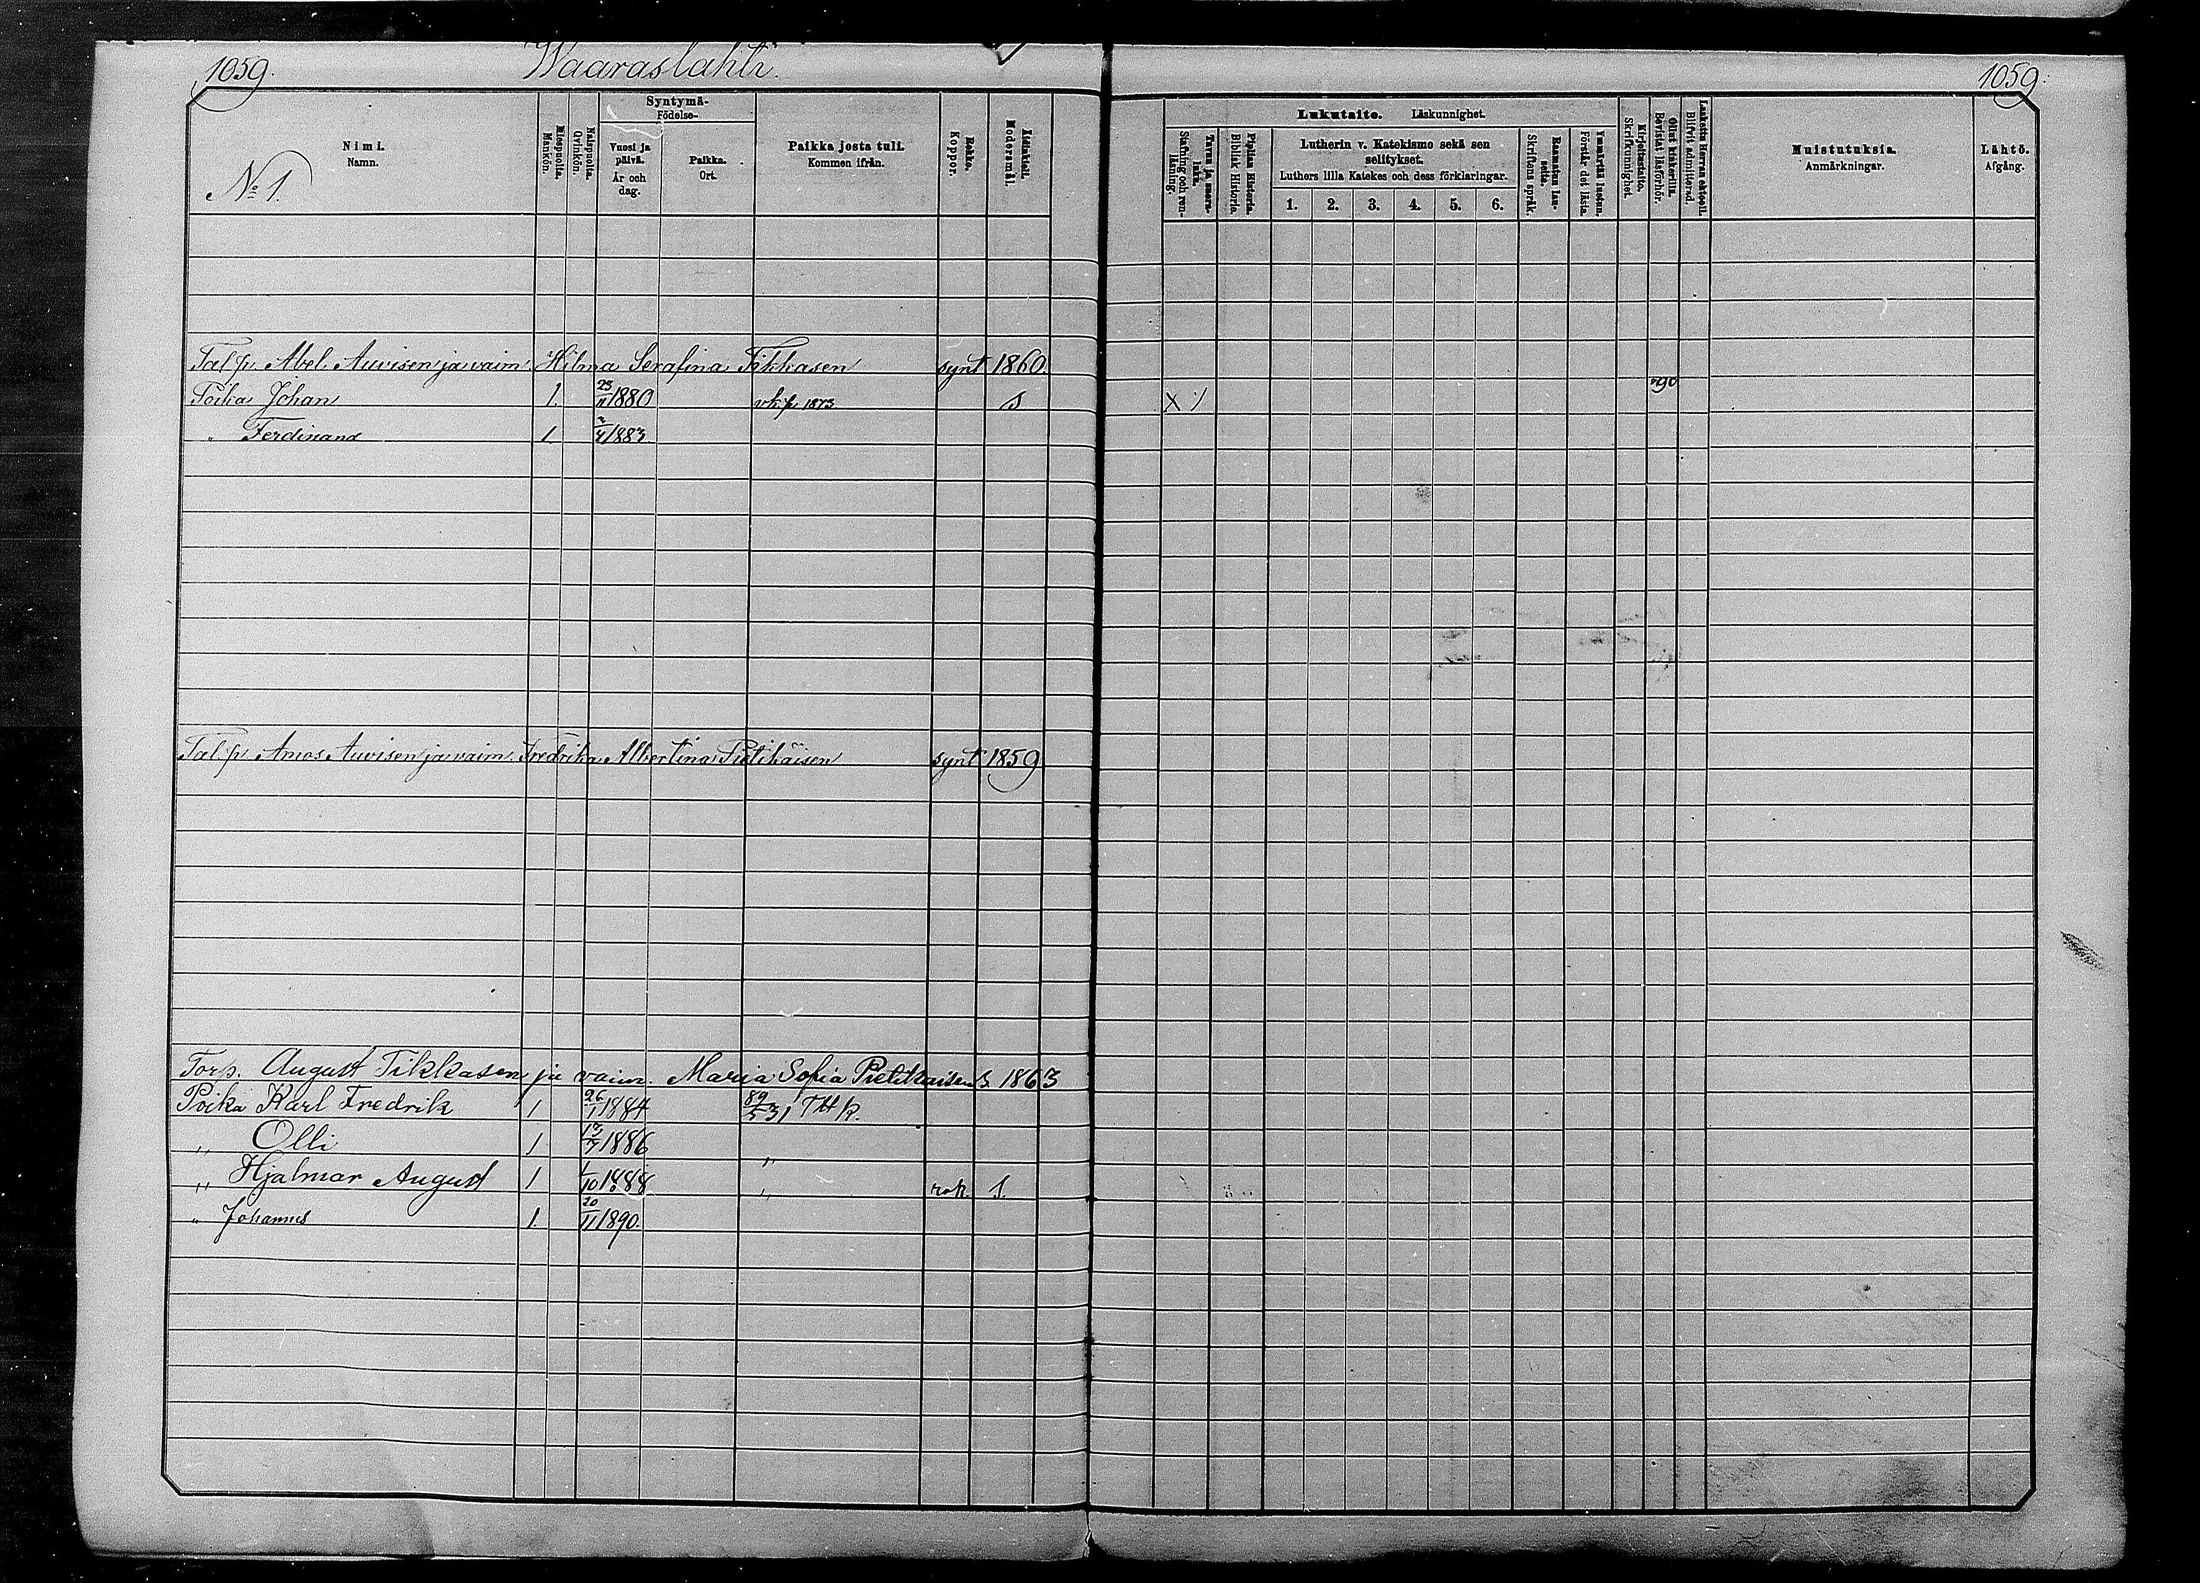 1059. Waaraslahti. 1059.
Nimi. Namn.
No 1.
Miespuolia. Mankön.
Naispuolia. Qvinkön.
Syntymä- Födelse-
Vuosi ja päivä. År och dag.
Paikka. Ort.
Paikka josta tuli. Kommen ifrån.
Rokko. Koppor.
Äidinkieli. Modersmål.
Lukutaito. Läskunnighet.
Tavaa ja suoraluku. Stafning och renläsning.
Piplian Historia. Biblisk Historia.
Lutherin v. Katekismo sekä sen selitykset.
Luthers lilla Katekes och dess förklaringar.
1. 2. 3. 4. 5. 6.
Raamatun lauseita. Skriftens språk.
Ymmärtää luetun. Förstår det lästa.
Kirjoitustaito. Skrifkunnighet.
Ollut kinkerillä. Bevistat läsförhör.
Laskettu Herran ehtoell. Blifvit admitterad.
Muistutuksia. Anmärkningar.
Lähtö. Afgång.
Tal. p. Abel Auvisen ja vaim. Hilma Serafina Tikkasen synt 1860
Poika Johan 1. 23/11 1880 vkp. 1873 s X / 90
" Ferdinand 1 2/4 1883
Tal. p. Amos Auvisen ja vaim. Fredrika Albertina Pietikäisen synt 1859
Torp. August Tikkasen ja vaim. Maria Sofia Pietikäisen s. 1863
Poika Karl Fredrik 1 26/1 1884 89/5 31 THk.
" Olli 1 13/7 1886 "
" Hjalmar August 1 1/10 1888 " rok. s.
" Johannes 1. 20/11 1890.